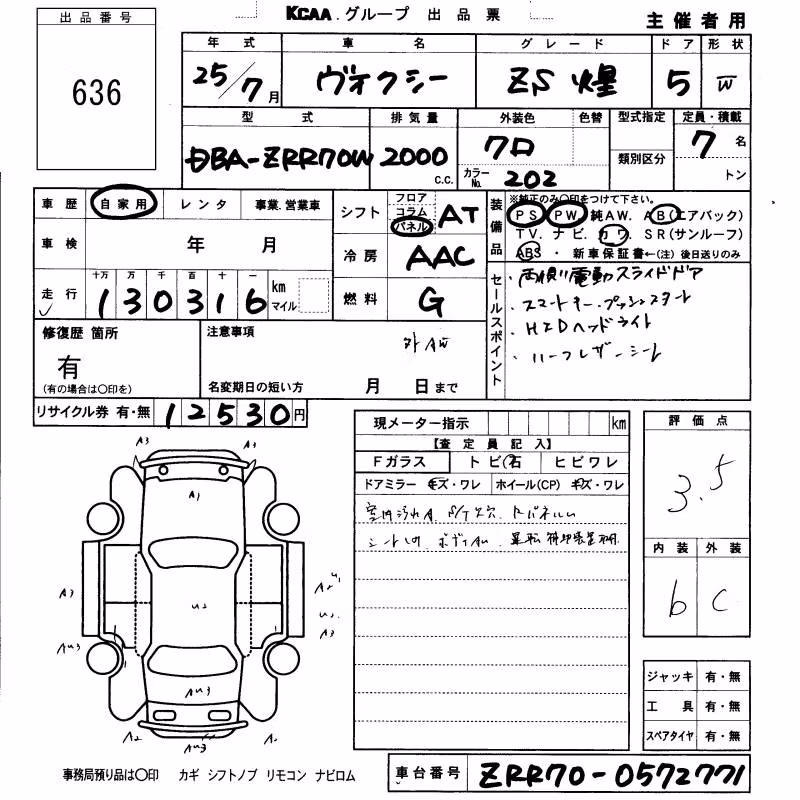 KCAA グループ 出品票
主催者用
出品番号
636
年式 車名 グレード ドア 形状
25/7月 ヴォクシー ZS 煌 5 W
型式 排気量 外装色 色替 型式指定 定員・積載
DBA-ZRR70W 2000 c.c. クロ 類別区分 7名
カラーNo. 202 トン
車歴 自家用 レンタ 事業.営業車
車検 年 月
走行 十万 万 千 百 十 一
130316 km マイル
シフト フロア コラム パネル AT
冷房 AAC
燃料 G
装備品
※純正のみ〇印をつけて下さい。
PS PW 純AW. AB(エアバック)
TV. ナビ. カワ. SR(サンルーフ)
ABS ・ 新車保証書←(注)後日送りのみ
セールスポイント
両側電動スライドドア
・スマートキー.プッシュスタート
・HIDヘッドライト
・ハーフレザーシート
修復歴 箇所
有
(有の場合は〇印を)
注意事項
外AW
名変期日の短い方 月 日まで
リサイクル券 有・無 12530円
現メーター指示 km
【査定員記入】
Fガラス トビ石 ヒビワレ
ドアミラー キズ・ワレ ホイール(CP) キズ・ワレ
室内汚れA
シート
評価点
3.5
内装 外装
b C
A3 A3
A1
A3 A2
U2 U2
A3
AU3 AU3
AU3
A2 A2
AU3
ジャッキ 有・無
工具 有・無
スペアタイヤ 有・無
事務局預り品は〇印 カギ シフトノブ リモコン ナビロム
車台番号 ZRR70-0572771